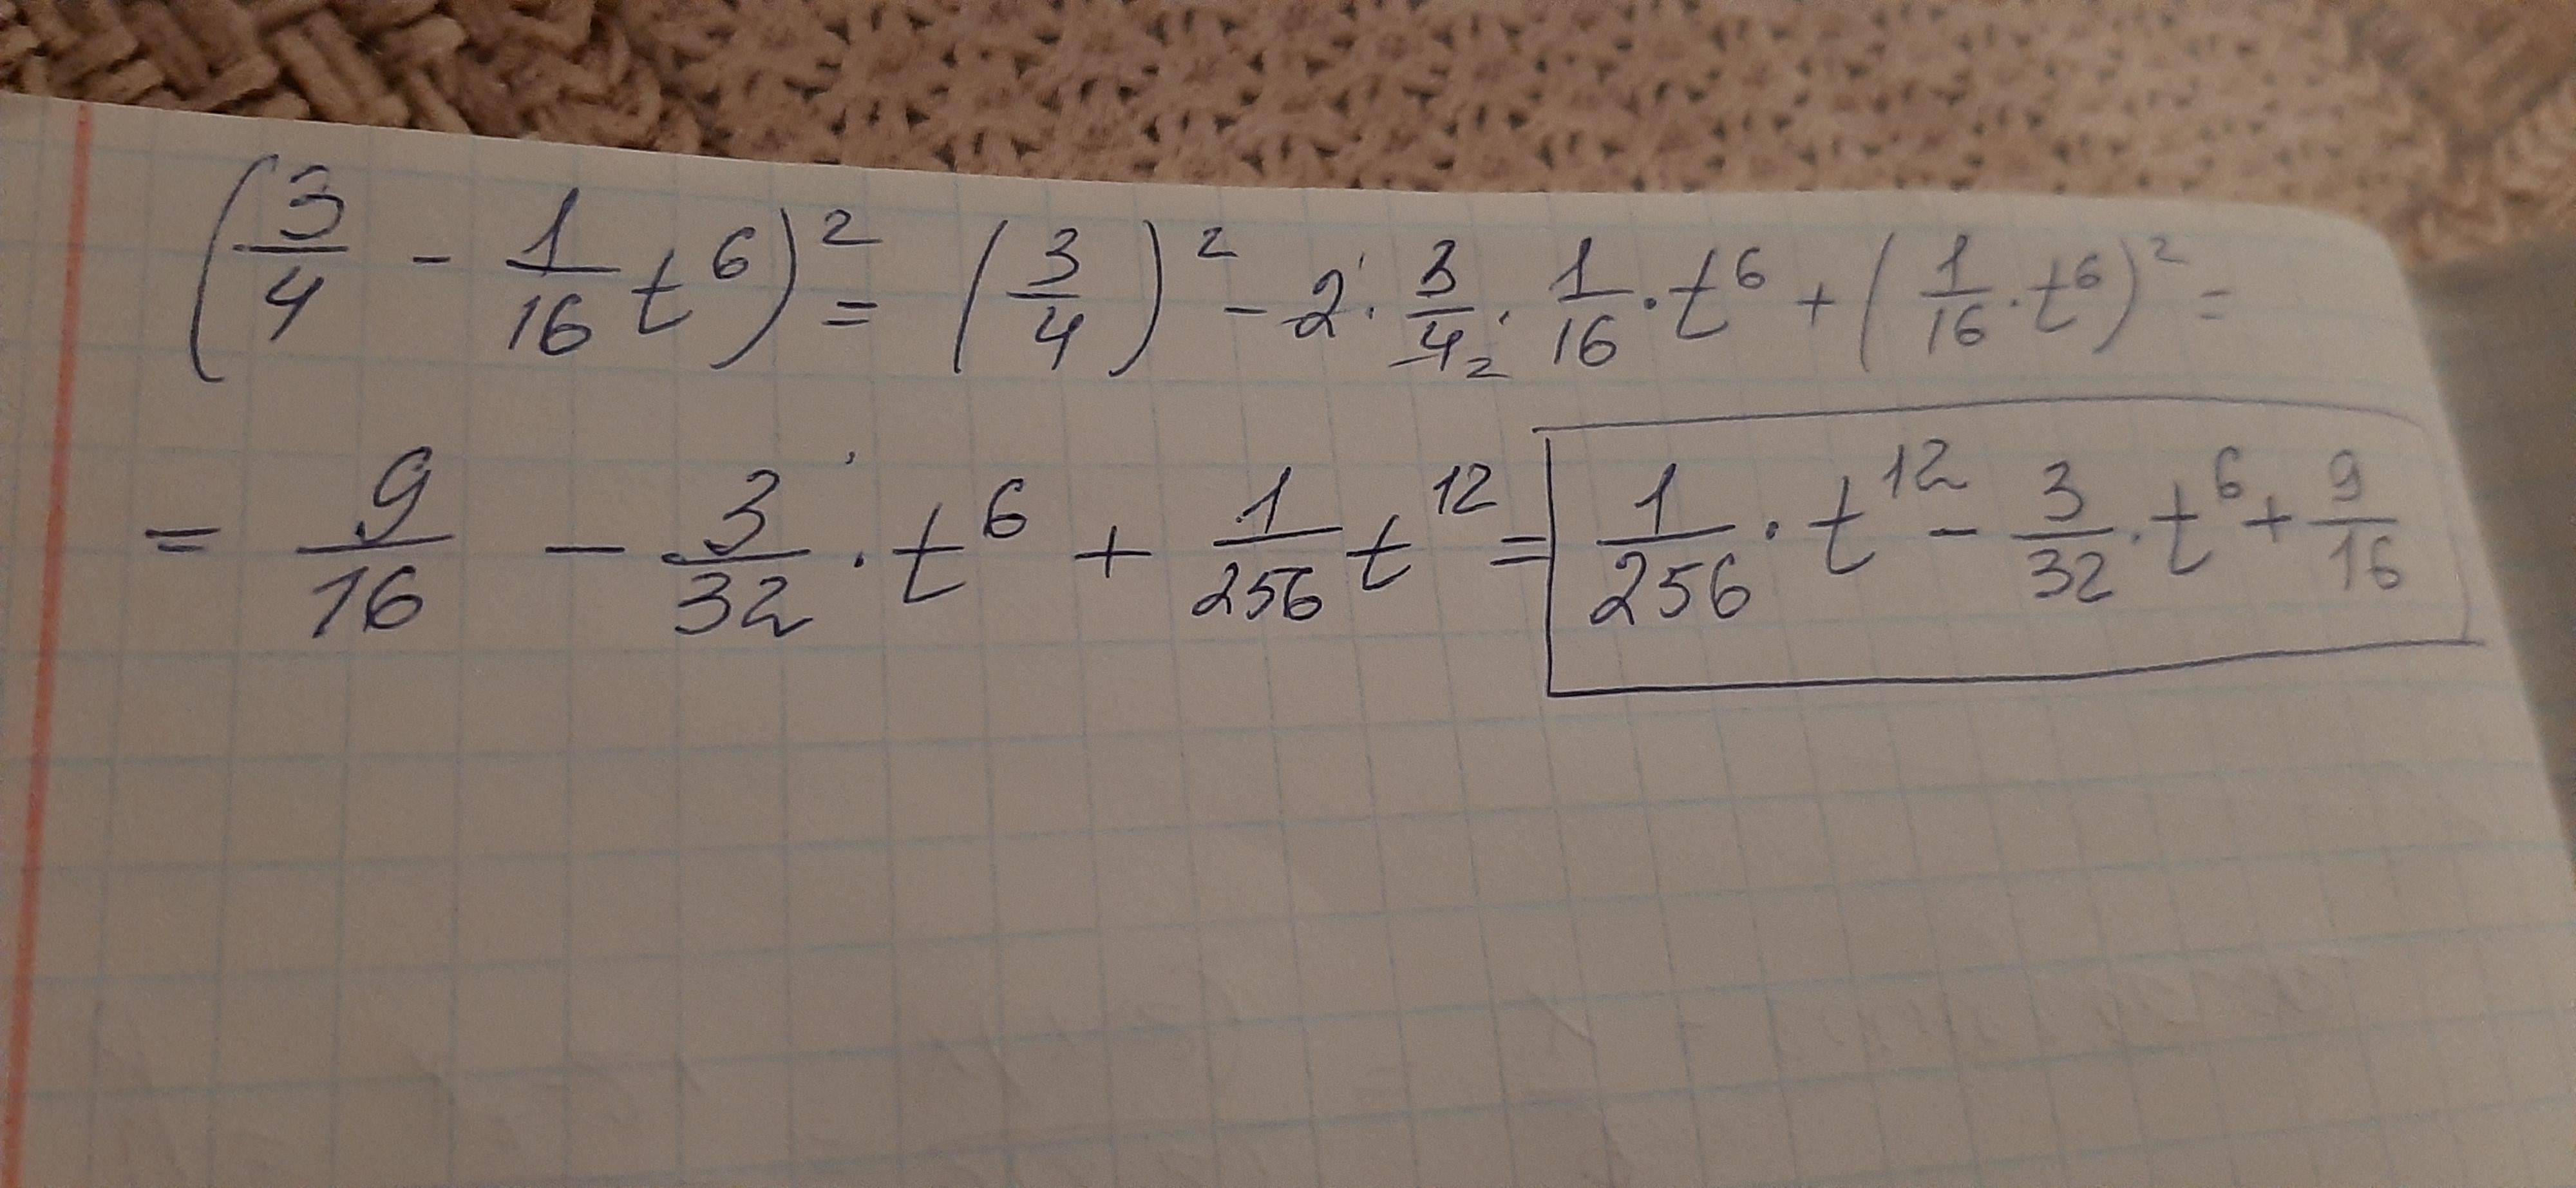 (3/4 - 1/16 t^6)^2 = (3/4)^2 - 2 · 3/4 2 · 1/16 · t^6 + (1/16 · t^6)^2 =
= 9/16 - 3/32 · t^6 + 1/256 t^12 = 1/256 · t^12 - 3/32 · t^6 + 9/16